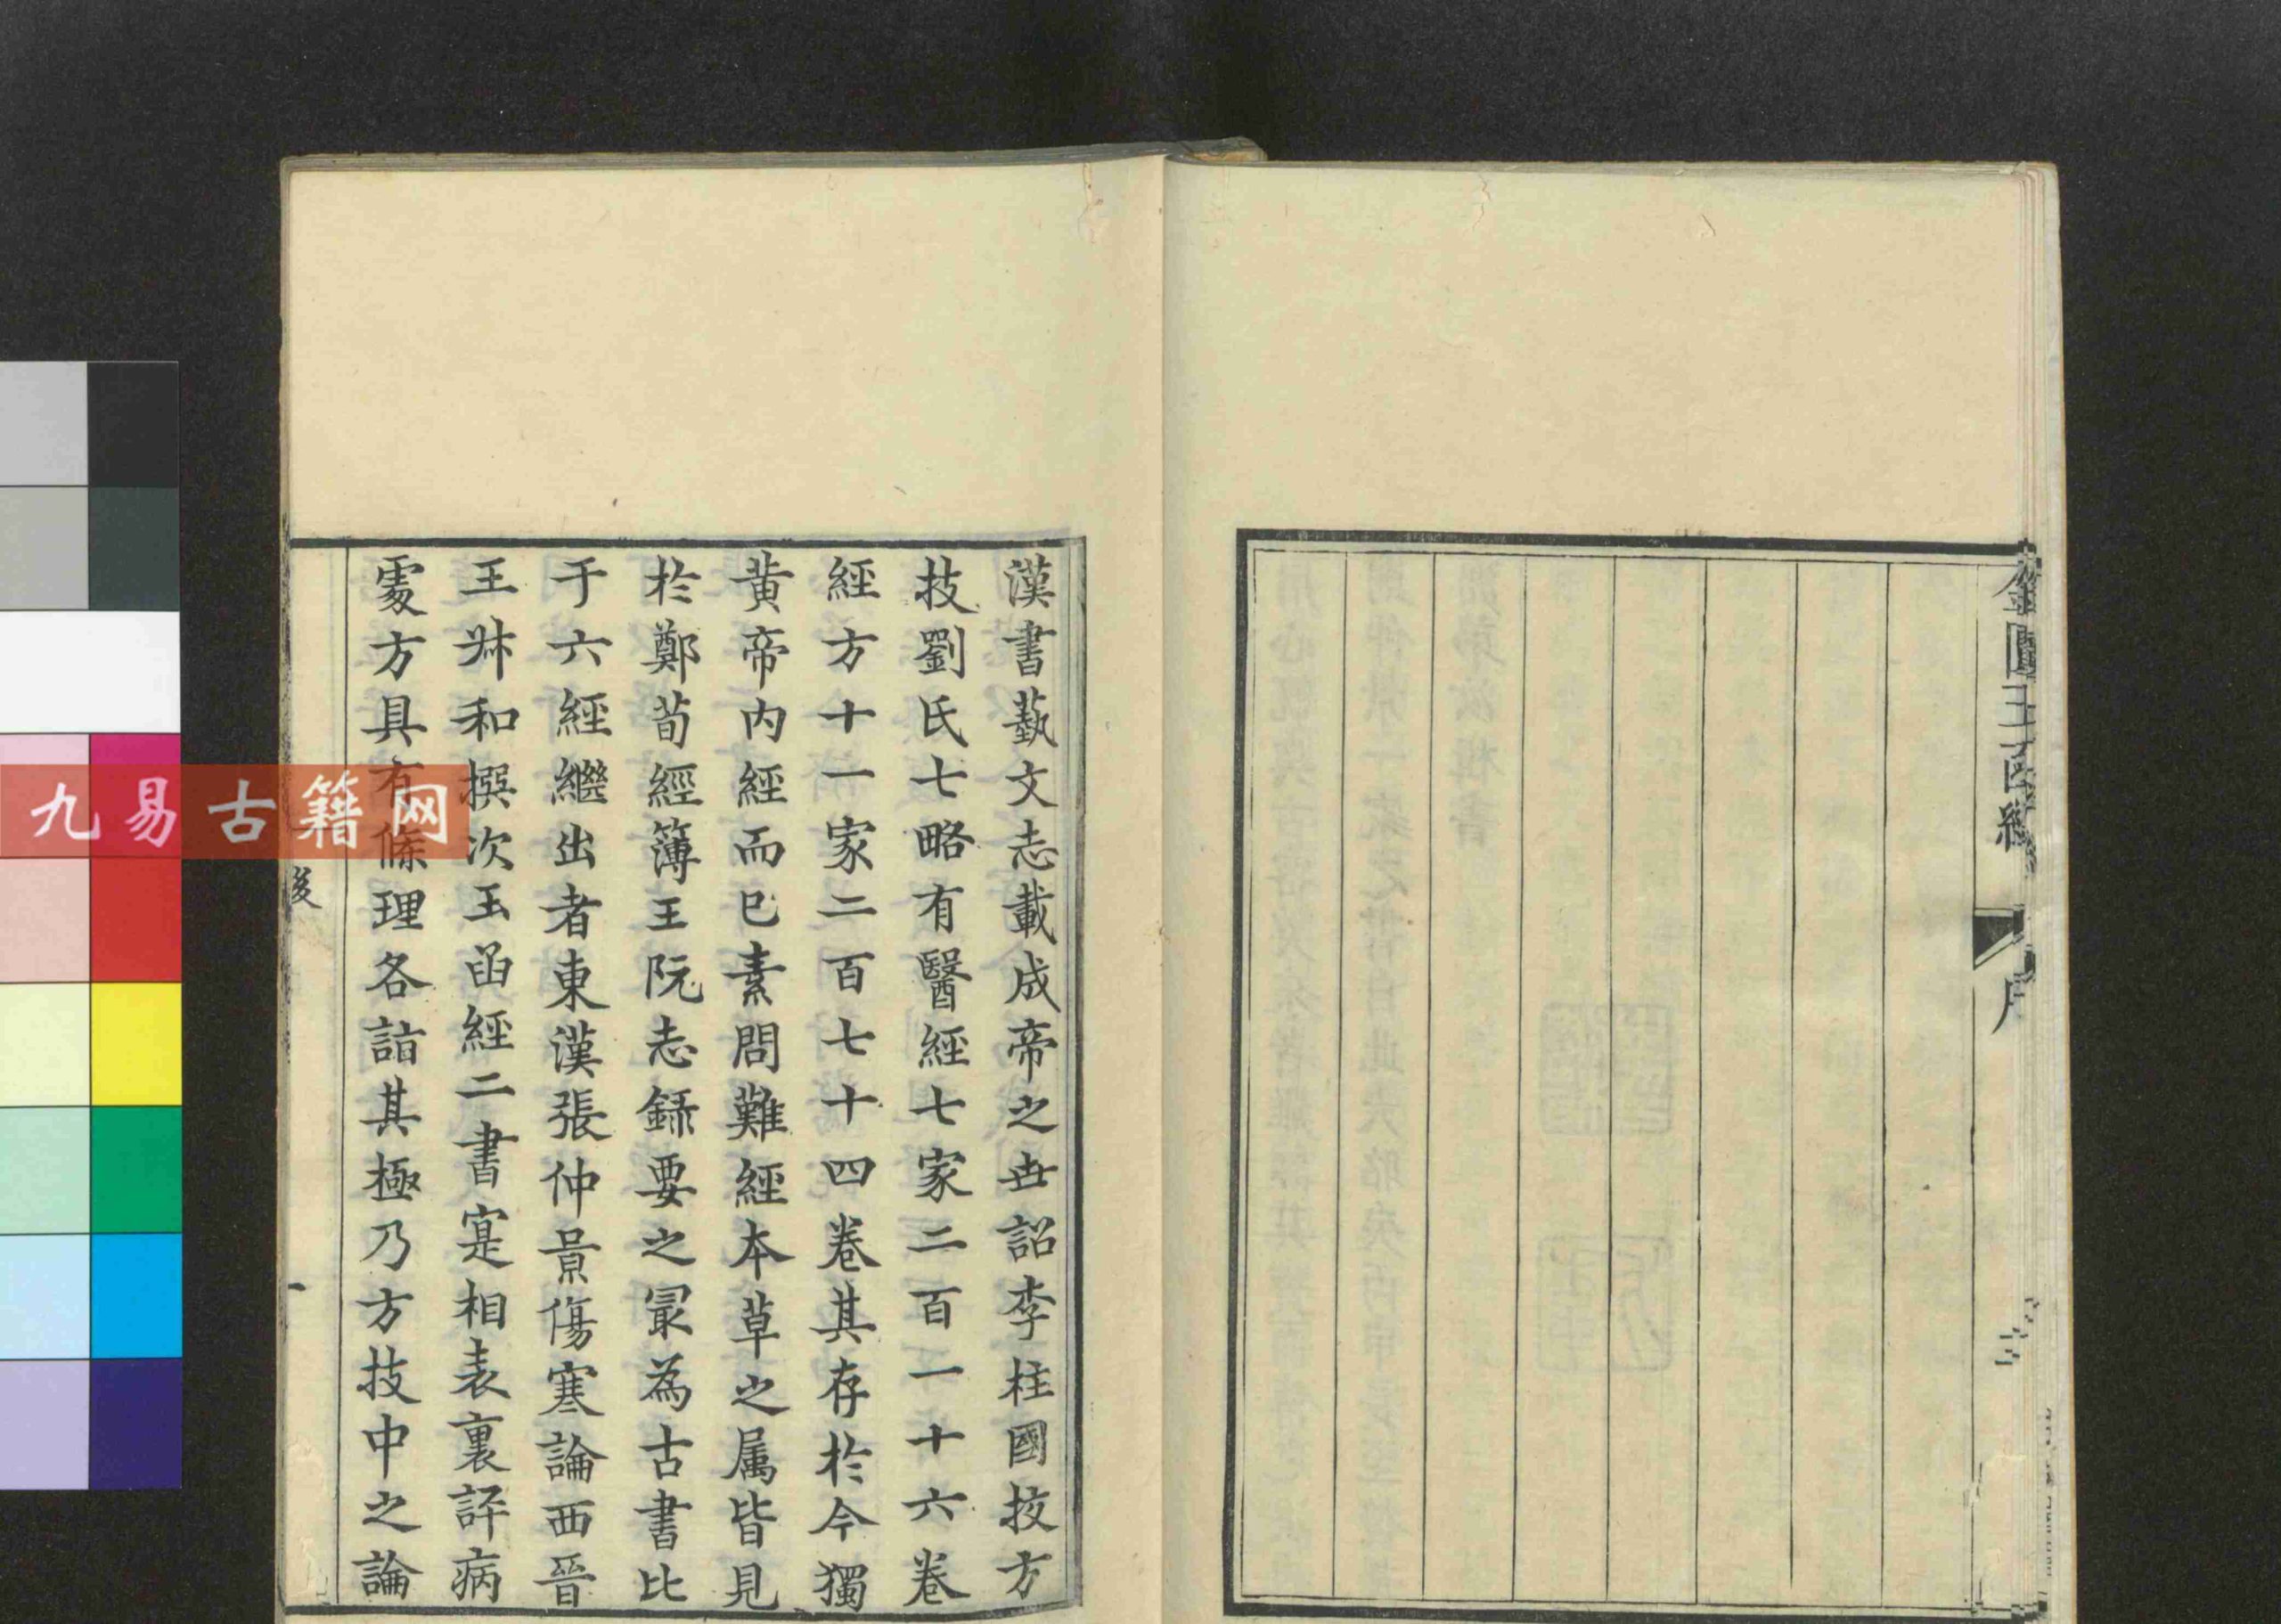 金匱玉函經
序
漢書藝文志載成帝之世詔李柱國挍方
技劉氏七略有醫經七家二百一十六卷
經方十一家二百七十四卷其存於今獨
黃帝内經而已素問難經本草之属皆見
於鄭荀經簿王阮志録要之冣為古書比
于六經繼出者東漢張仲景傷寒論西晉
王叔和撰次玉函經二書寔相表裏評病
處方具有條理各詣其極乃方技中之論
後
一
九易古籍网